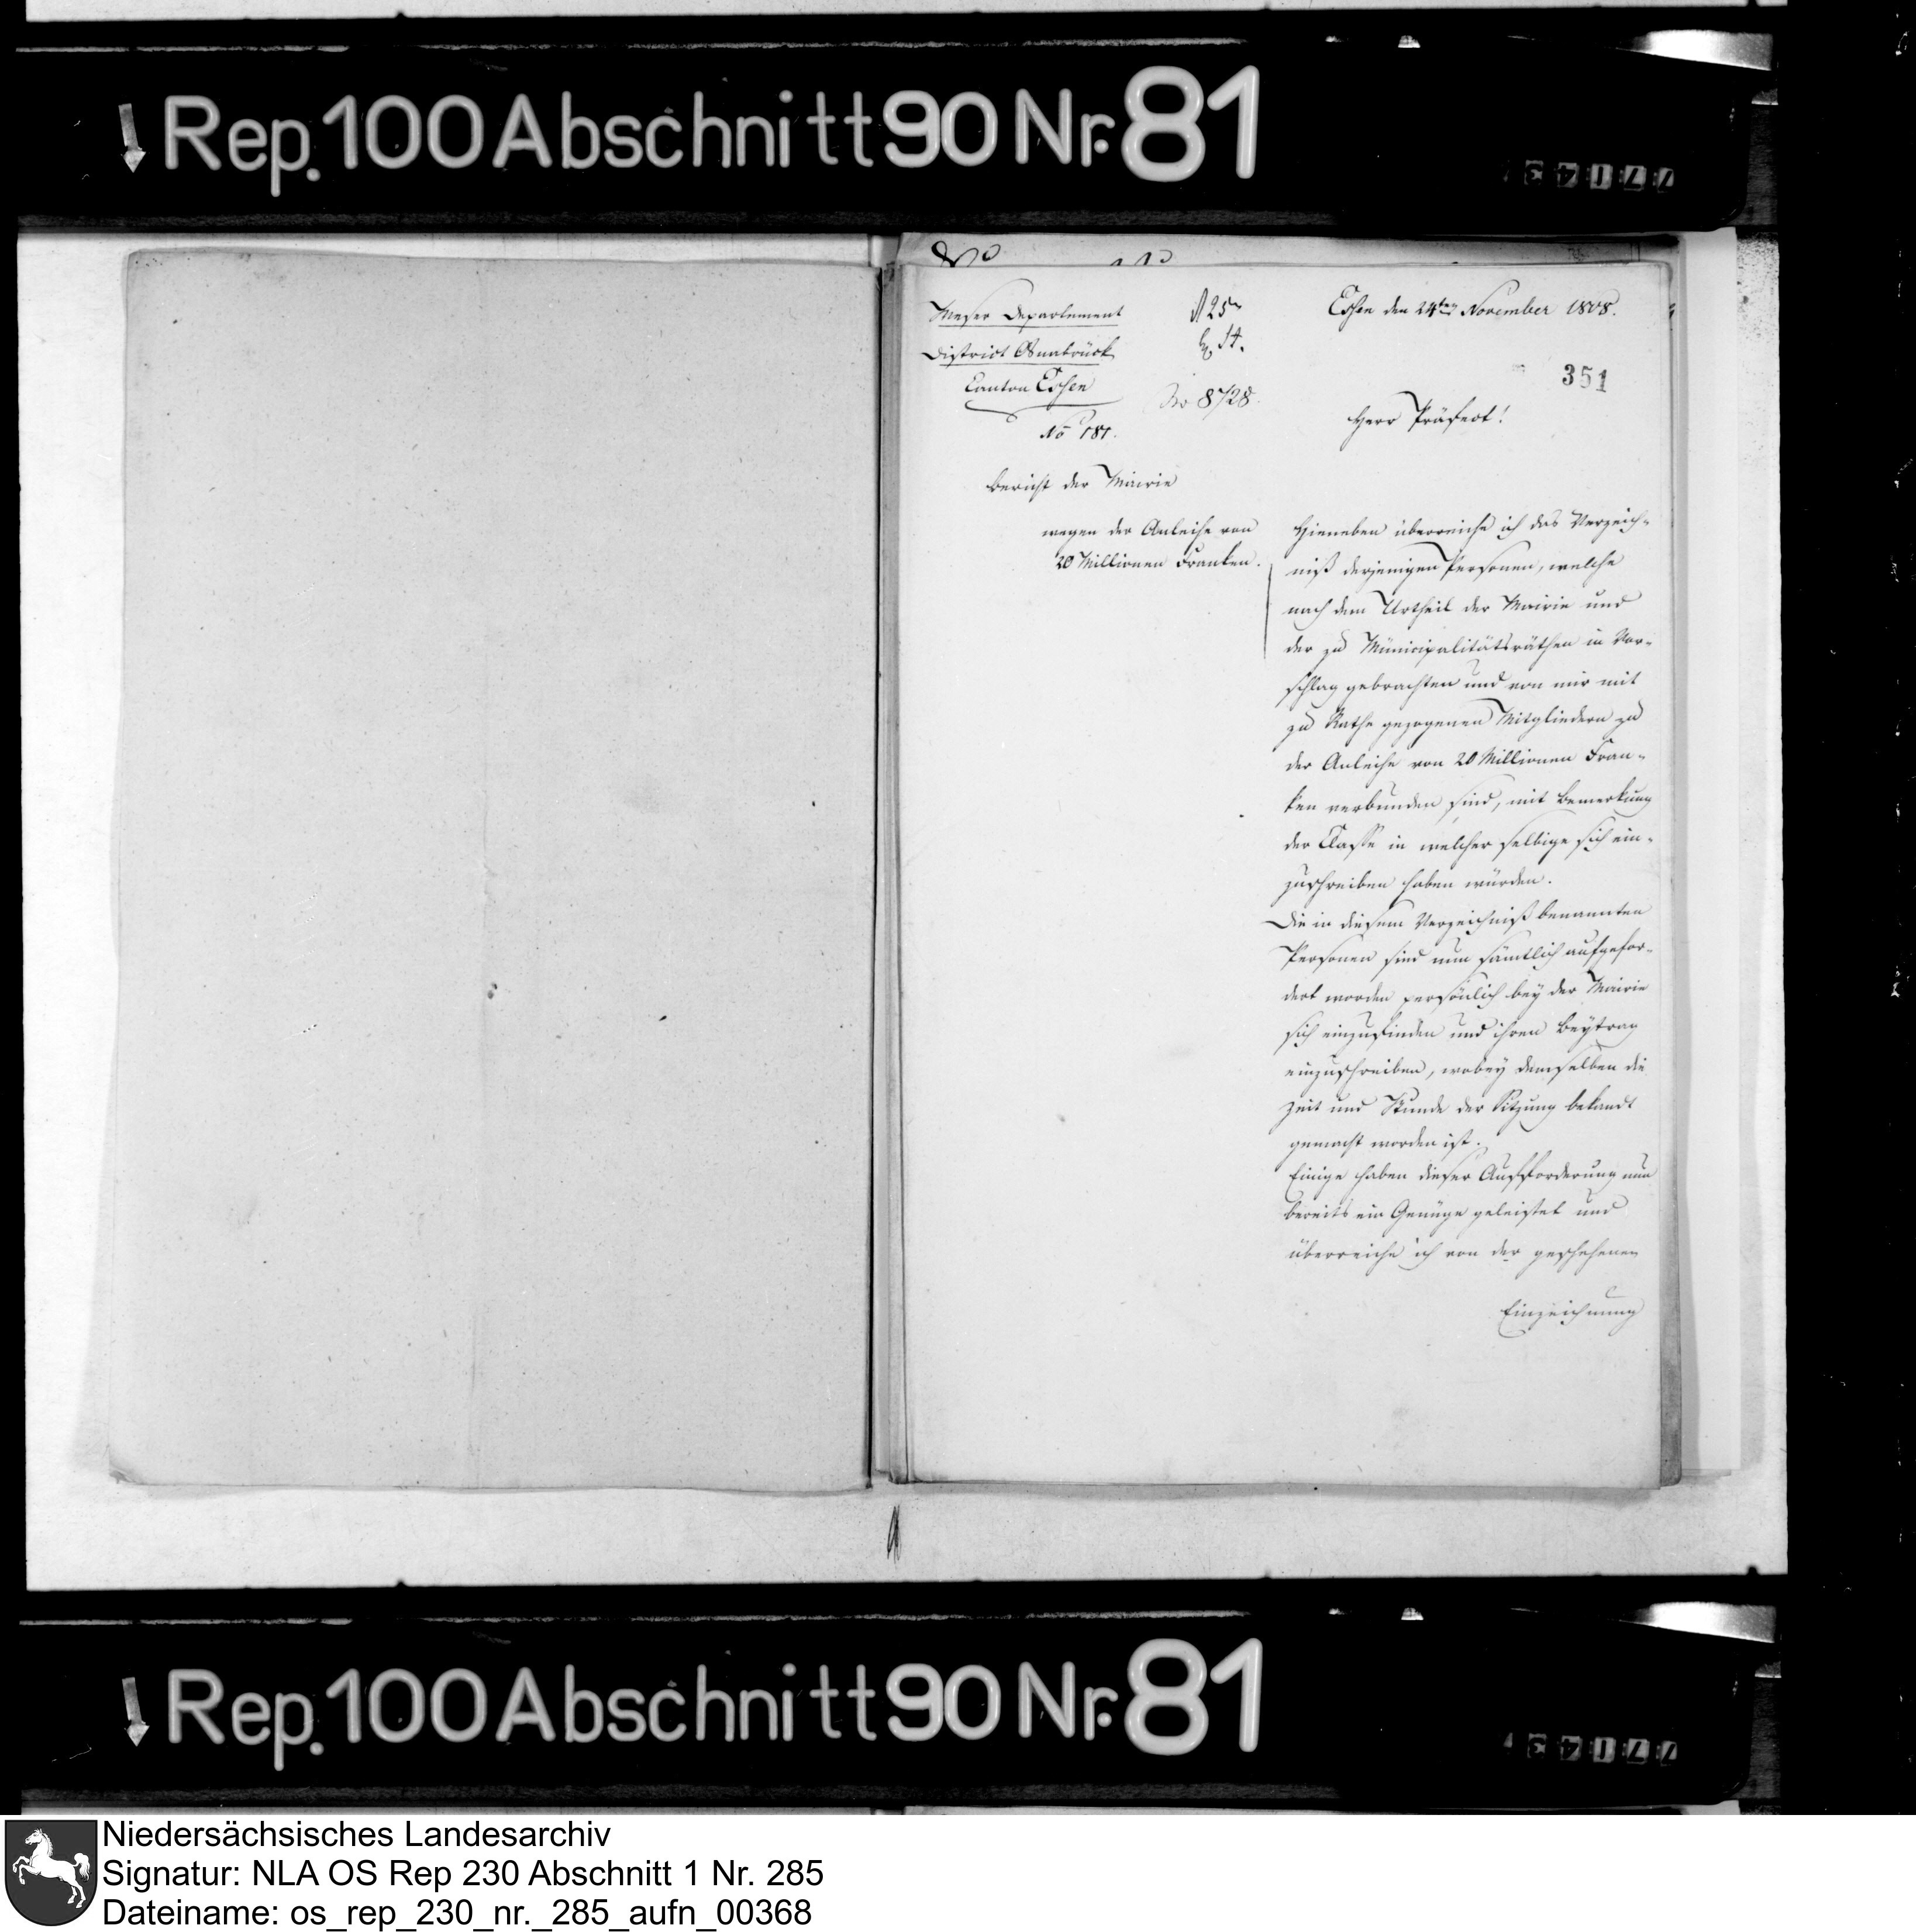 Rep. 100 Abschnitt 90 Nr. 81
Weser Departement
District Osnabrück
Canton Essen
No 181.
25
8728.
Essen den 24ten November 1808.
351
Herr Präfect!
Bericht der Mairie
wegen der Anleihe von
20 Millionen Franken.
Hieneben überreiche ich das Verzeich-
niß derjenigen Personen, welche
nach dem Urtheil der Mairie und
der zu Municipalitätsräthen in Vor-
schlag gebrachten und von mir mit
zu Rathe gezogenen Mitgliedern zu
der Anleihe von 20 Millionen Fran-
ken verbunden sind, mit Bemerkung
der Classe in welcher selbige sich ein-
zuschreiben haben würden.
Die in diesem Verzeichniß benannten
Personen sind nun sämtlich aufgefor-
dert worden persönlich bey der Mairie
sich einzufinden und ihren Beytrag
einzuschreiben, wobey denselben die
Zeit und Stunde der Sitzung bekandt
gemacht worden ist.
Einige haben dieser Aufforderung nun
bereits ein Genüge geleistet und
überreiche ich von der geschehenen
Einzeichnung
Rep. 100 Abschnitt 90 Nr. 81
Niedersächsisches Landesarchiv
Signatur: NLA OS Rep 230 Abschnitt 1 Nr. 285
Dateiname: os_rep_230_nr._285_aufn_00368